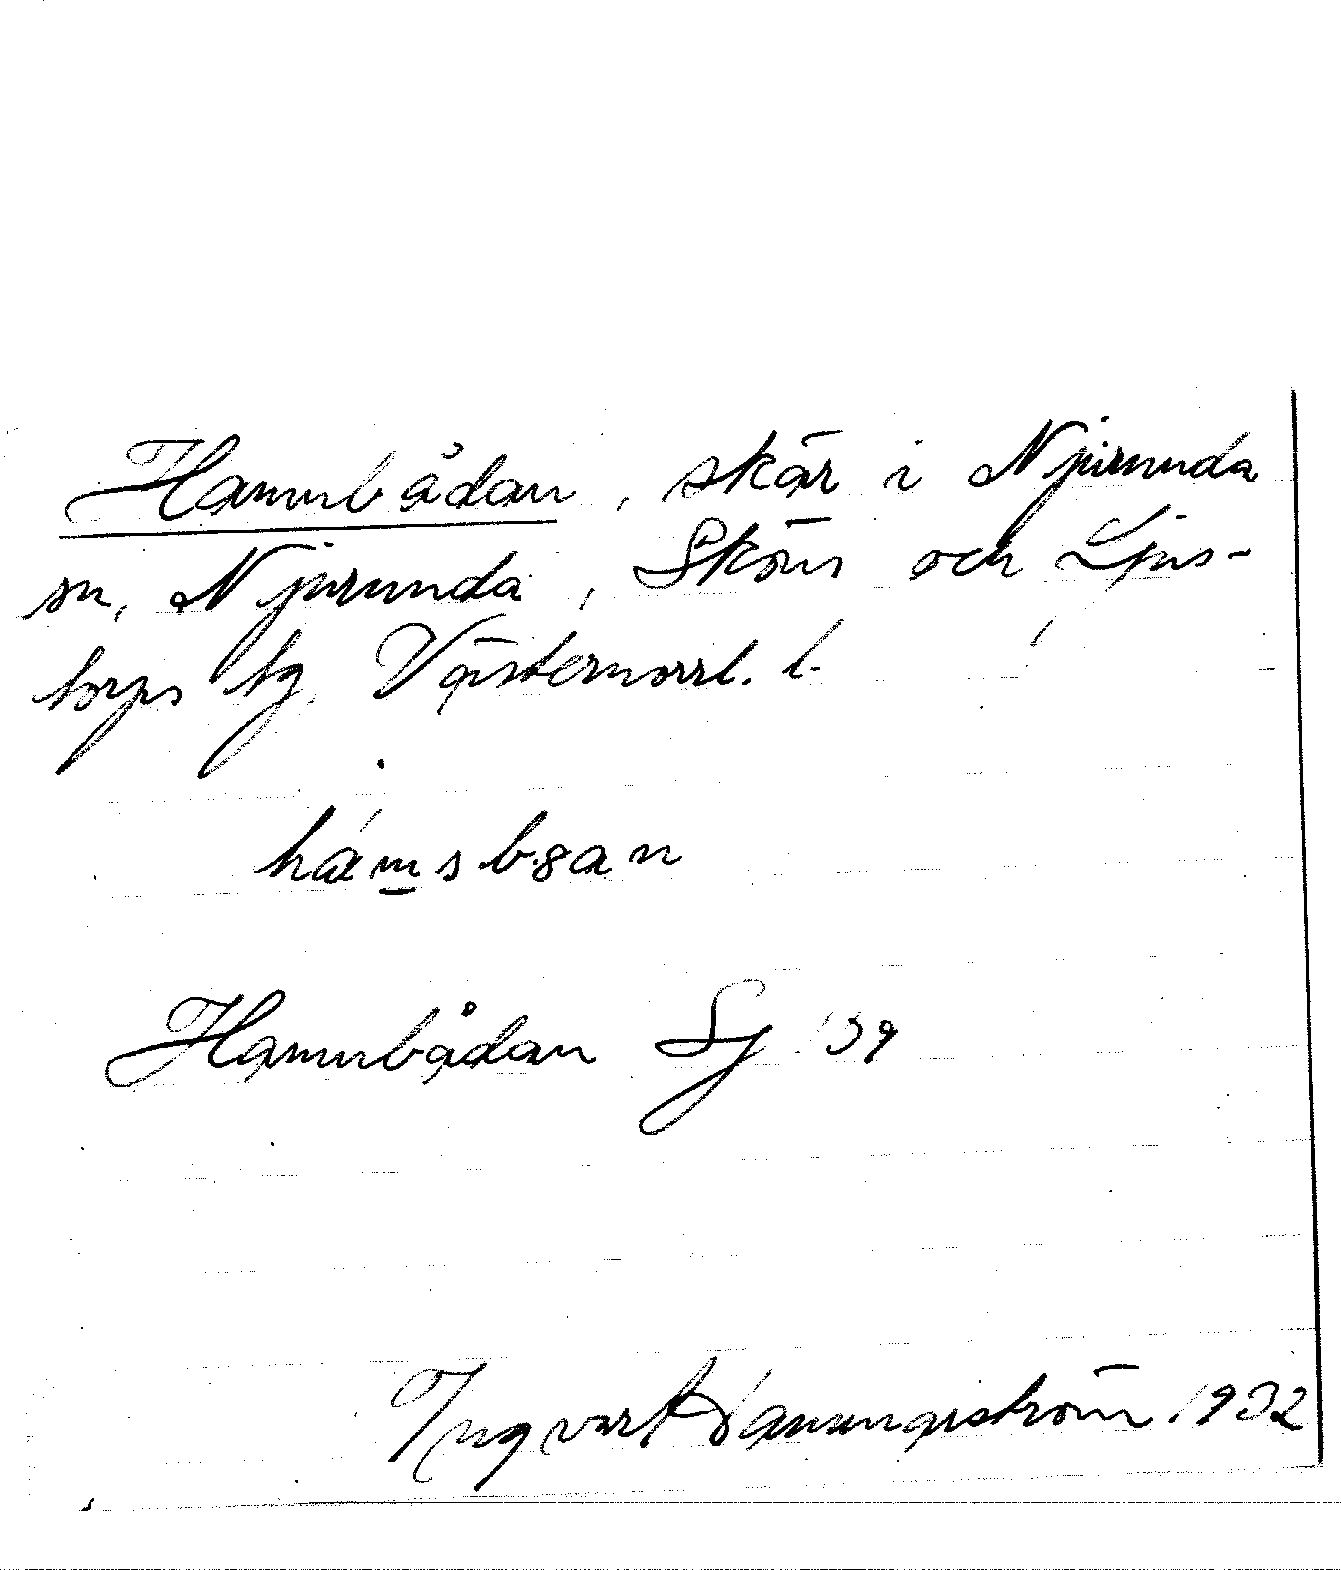 Hamnbådan, skär i Njurunda
sn, Njurunda, Sköns och Ljus-
torps tg, Västernorrl. l.
hámsbɞan
Hamnbådan Sj '39
Ingvart 1932